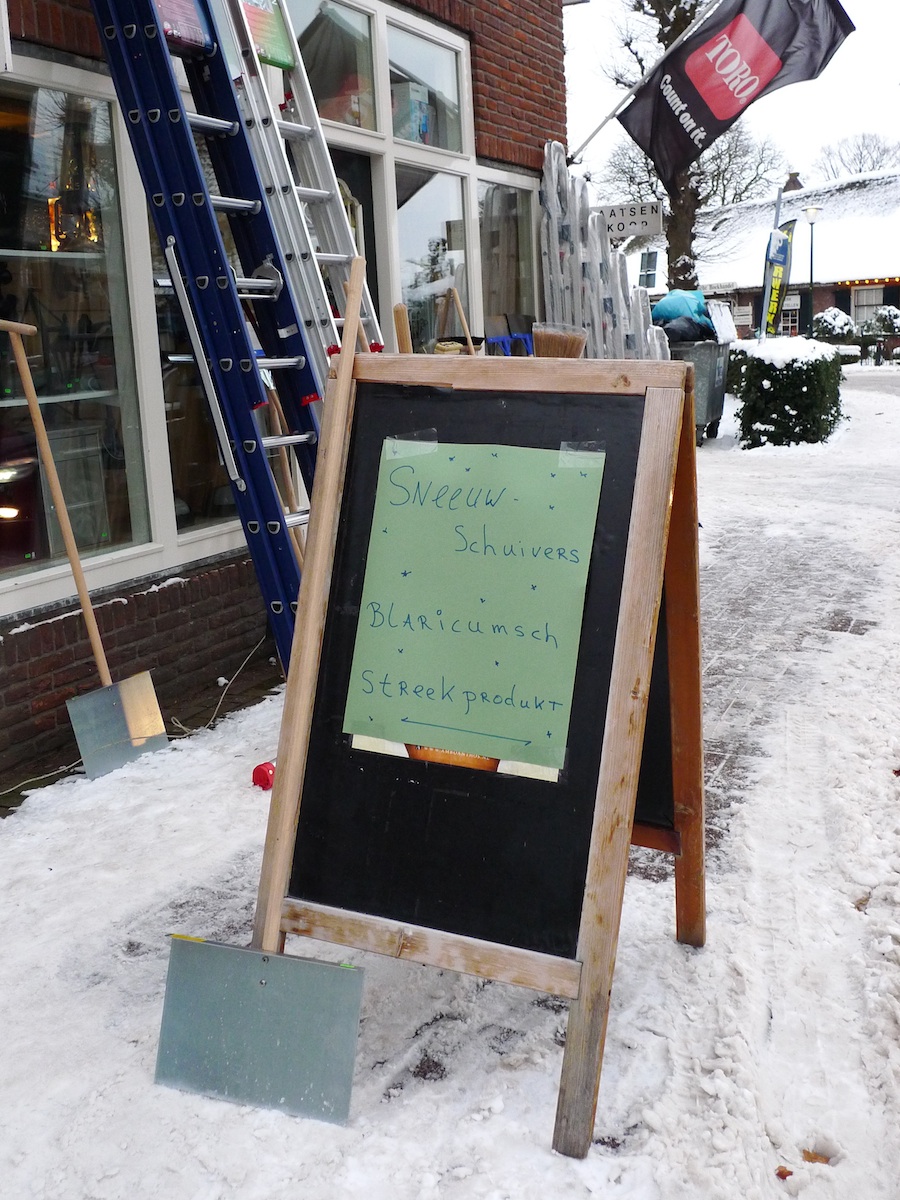 TORO
Count on it.
AATSEN
KOOP
Sneeuw-
Schuivers
Blaricumsch
Streekprodukt